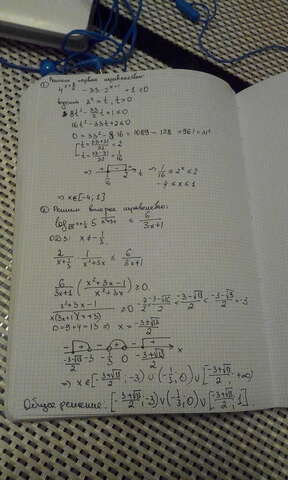 ① Решим первое неравенство:
4^{x+3/2} - 33·2^{x-1} + 1 ≤ 0
2^x = t, t>0
8t² - 33/2 t + 1 ≤ 0
16t² - 33t + 2 ≤ 0
D = 33² - 8·16 = 1089 - 128 = 961 = 31²
t = (33+31)/32 = 2
t = (33-31)/32 = 1/16
⇒ 1/16 ≤ 2^x ≤ 2
-4 ≤ x ≤ 1
⇒ x∈[-4; 1]
② Решим второе неравенство:
≤ 6/(3x+1)
ОДЗ: x ≠ -1/3
2/(x+1/3) - 1/(x²+3x) ≤ 6/(3x+1)
6/(3x+1) ≥ 0
(x²+3x-1)/(x(3x+1)(x+3)) ≥ 0
D = 9+4 = 13 ⇒ x = (-3±√13)/2
-3 -1/3 0 (-3+√13)/2 x
⇒ x∈[(-3-√13)/2; -3) ∪ (-1/3; 0) ∪ [(-3+√13)/2; +∞)
Общее решение: [(-3+√13)/2; -3) ∪ (-1/3; 0) ∪ [(-3+√13)/2; 1]